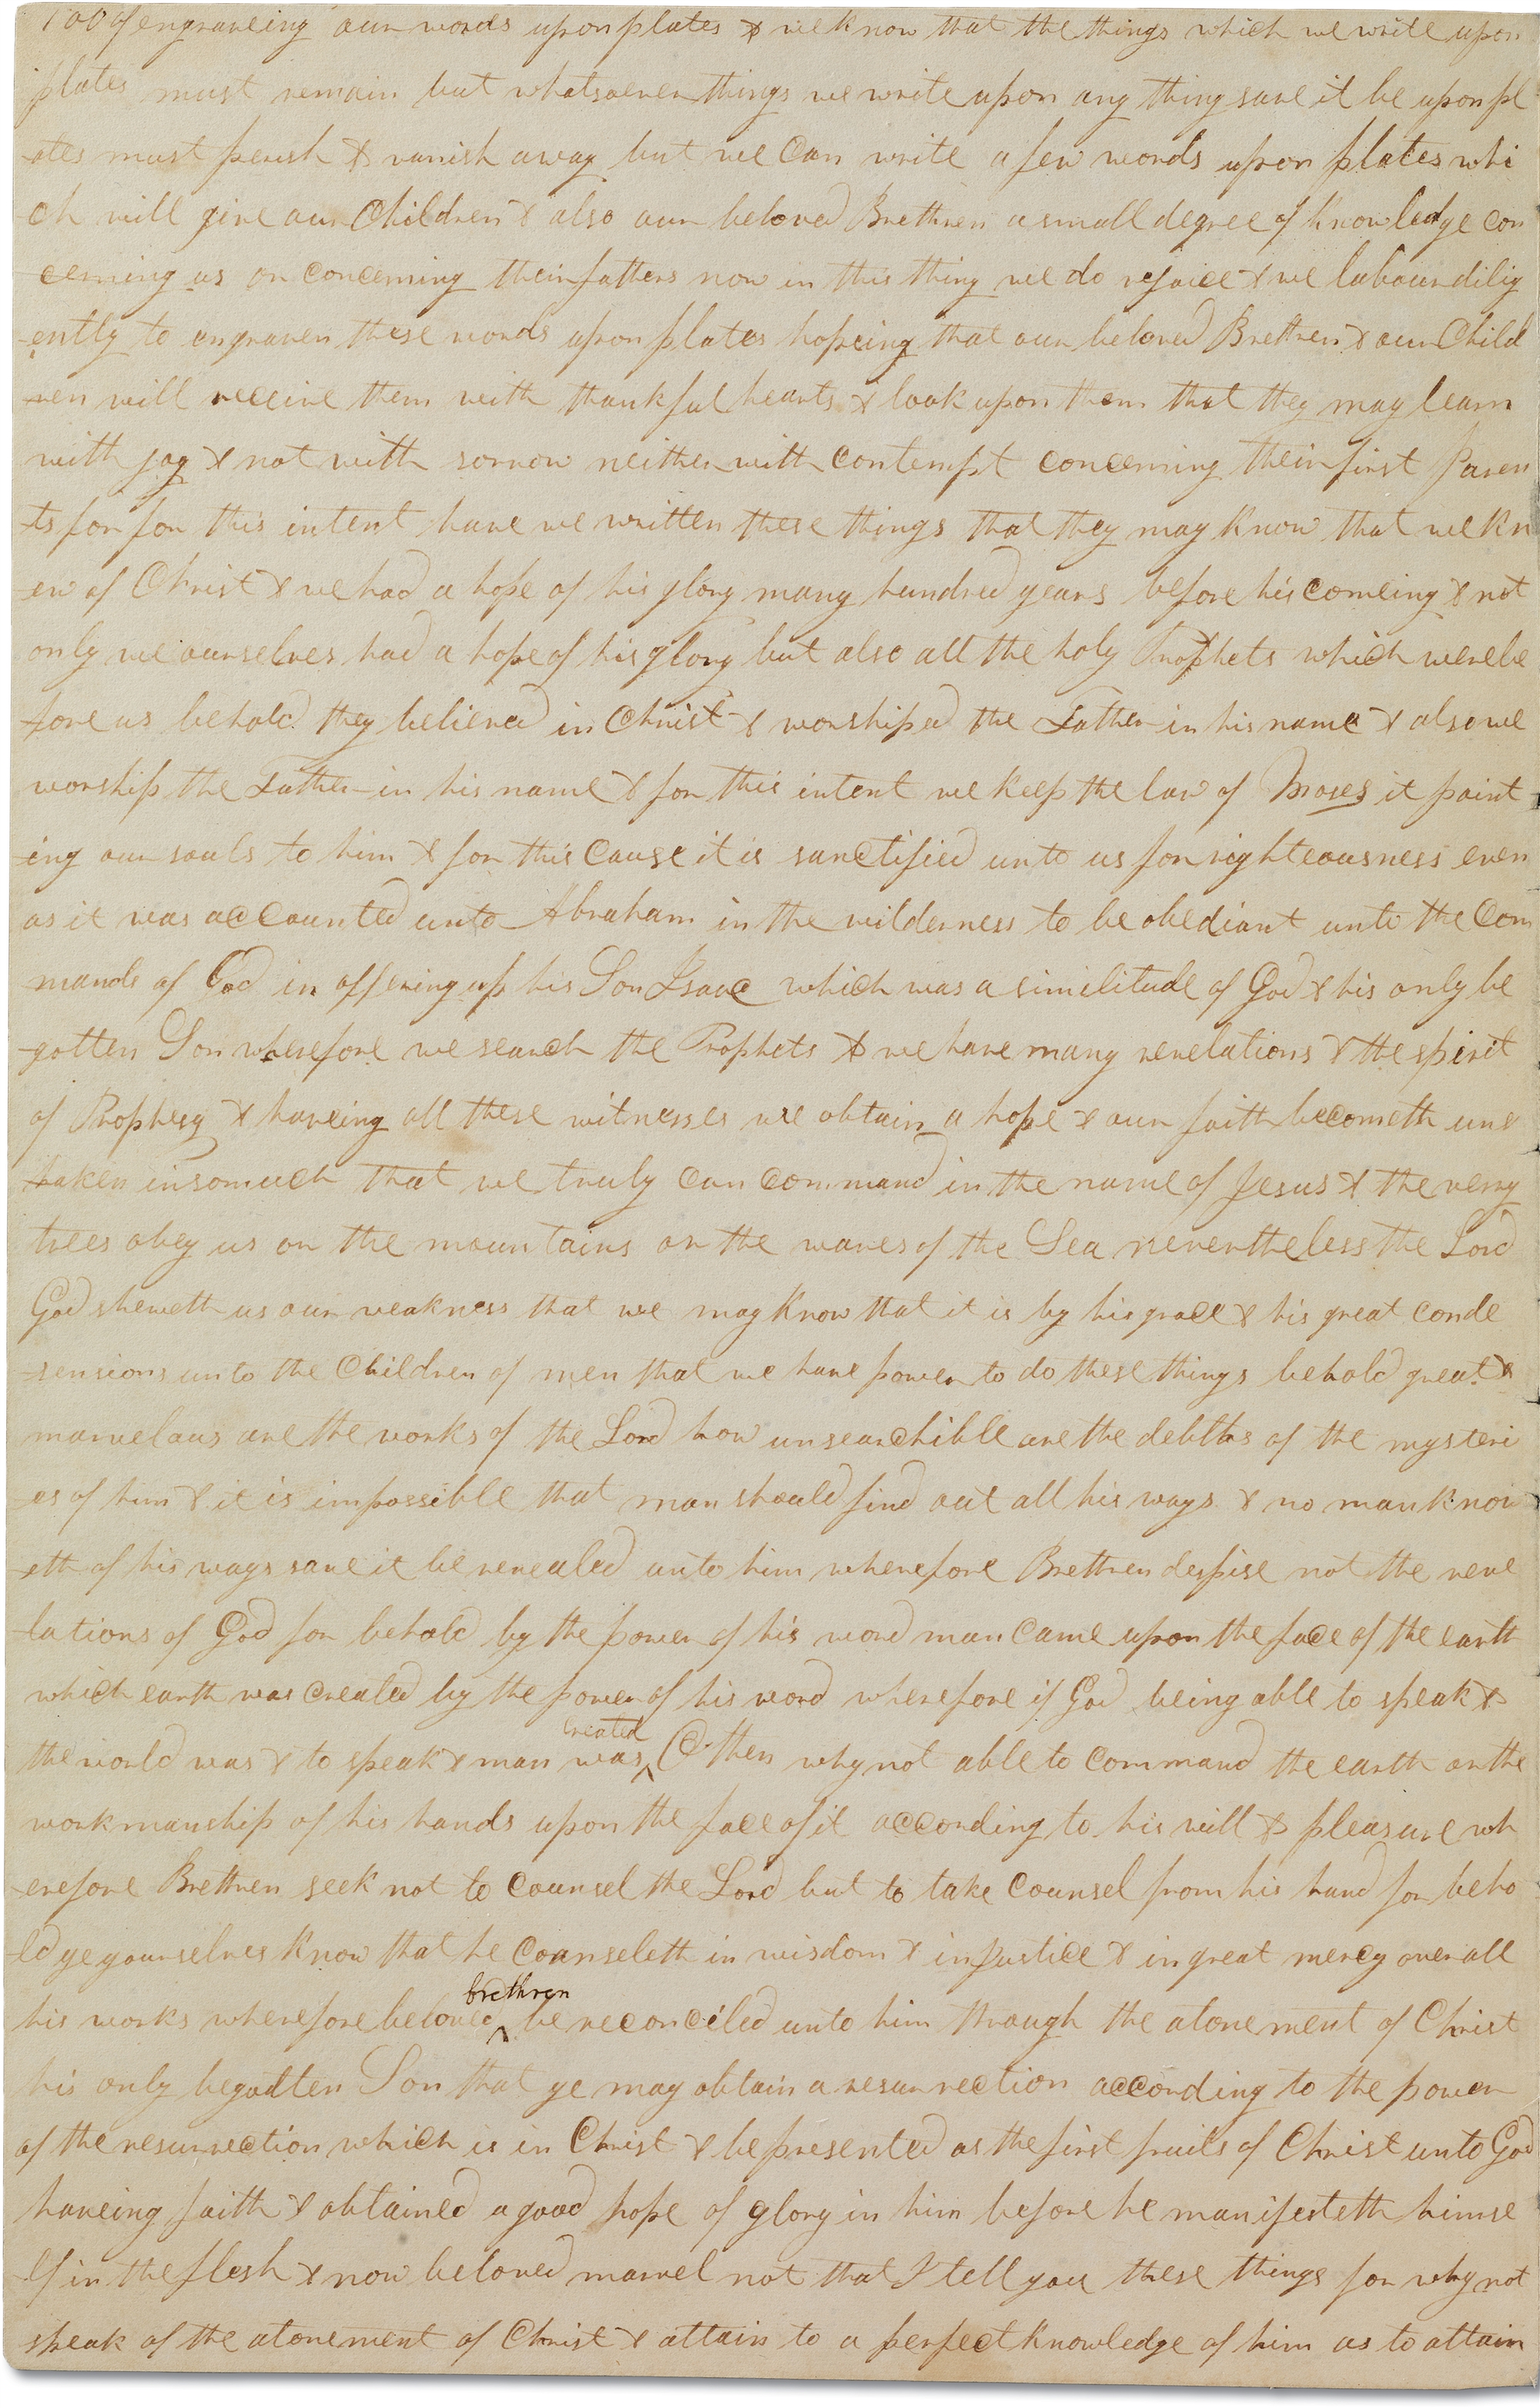 100 of engraveing our words upon plates & we know that the things which we write upon
plates must remain but whatsoever things we write upon any thing save it be upon pl
-ates must perish & vanish away but we Can write a few words upon plates whi
ch will give our Children & also our beloved Brethren a small degree of knowledge con
cerning us or concerning their fathers now in this thing we do rejoice & we labour dilig
-ently to engraven these words upon plates hopeing that our beloved Brethren & our Child
-ren will receive them with thankful hearts & look upon them that they may learn
with joy & not with sorrow neither with Contempt concerning their first Paren
-ts for for this intent have we written these things that they may know that we kn
-ew of Christ & we had a hope of his glory many hundred years before his comeing & not
only we ourselves had a hope of his glory but also all the holy Prophets which were be
-fore us behold they believed in Christ & worshiped the Father in his name & also we
worship the Father in his name & for this intent we keep the law of Moses it point
-ing our souls to him & for this Cause it is sanctified unto us for righteousness even
as it was accounted unto Abraham in the wilderness to be obediant unto the Com
mands of God in offering up his Son Isaac which was a similitude of God & his only be
-gotten Son wherefore we search the Prophets & we have many revelations & the spirit
of Prophesy & haveing all these witnesses we obtain a hope & our faith becometh uns
-haken insomuch that we truly can command in the name of Jesus & the very
trees obey us or the mountains or the waves of the Sea nevertheless the Lord
God sheweth us our weakness that we may know that it is by his grace & his great conde
-sensions unto the Children of men that we have power to do these things behold great &
marvelous are the works of the Lord how unsearchible are the debths of the mysteri
-es of him & it is impossible that man should find out all his ways & no man know
-eth of his ways save it be revealed unto him wherefore Brethren despise not the reve
-lations of God for behold by the power of his word man Came upon the face of the earth
which earth was created by the power of his word wherefore if God being able to speak &
the world was & to speak & man was created O then why not able to command the earth or the
workmanship of his hands upon the face of it according to his will & pleasure wh
-erefore Brethren seek not to Counsel the Lord but to take Counsel from his hand for beho
-ld ye yourselves know that he Counseleth in wisdom & in Justice & in great mercy over all
his works wherefore beloved brethren be reconciled unto him through the atonement of Christ
his only begodten Son that ye may obtain a resurrection according to the power
of the resurrection which is in Christ & be presented as the first fruits of Christ unto God
haveing faith & obtained a good hope of glory in him before he manifesteth himse
-lf in the flesh & now beloved marvel not that I tell you these things for why not
speak of the atonement of Christ & attain to a perfect knowledge of him as to attain